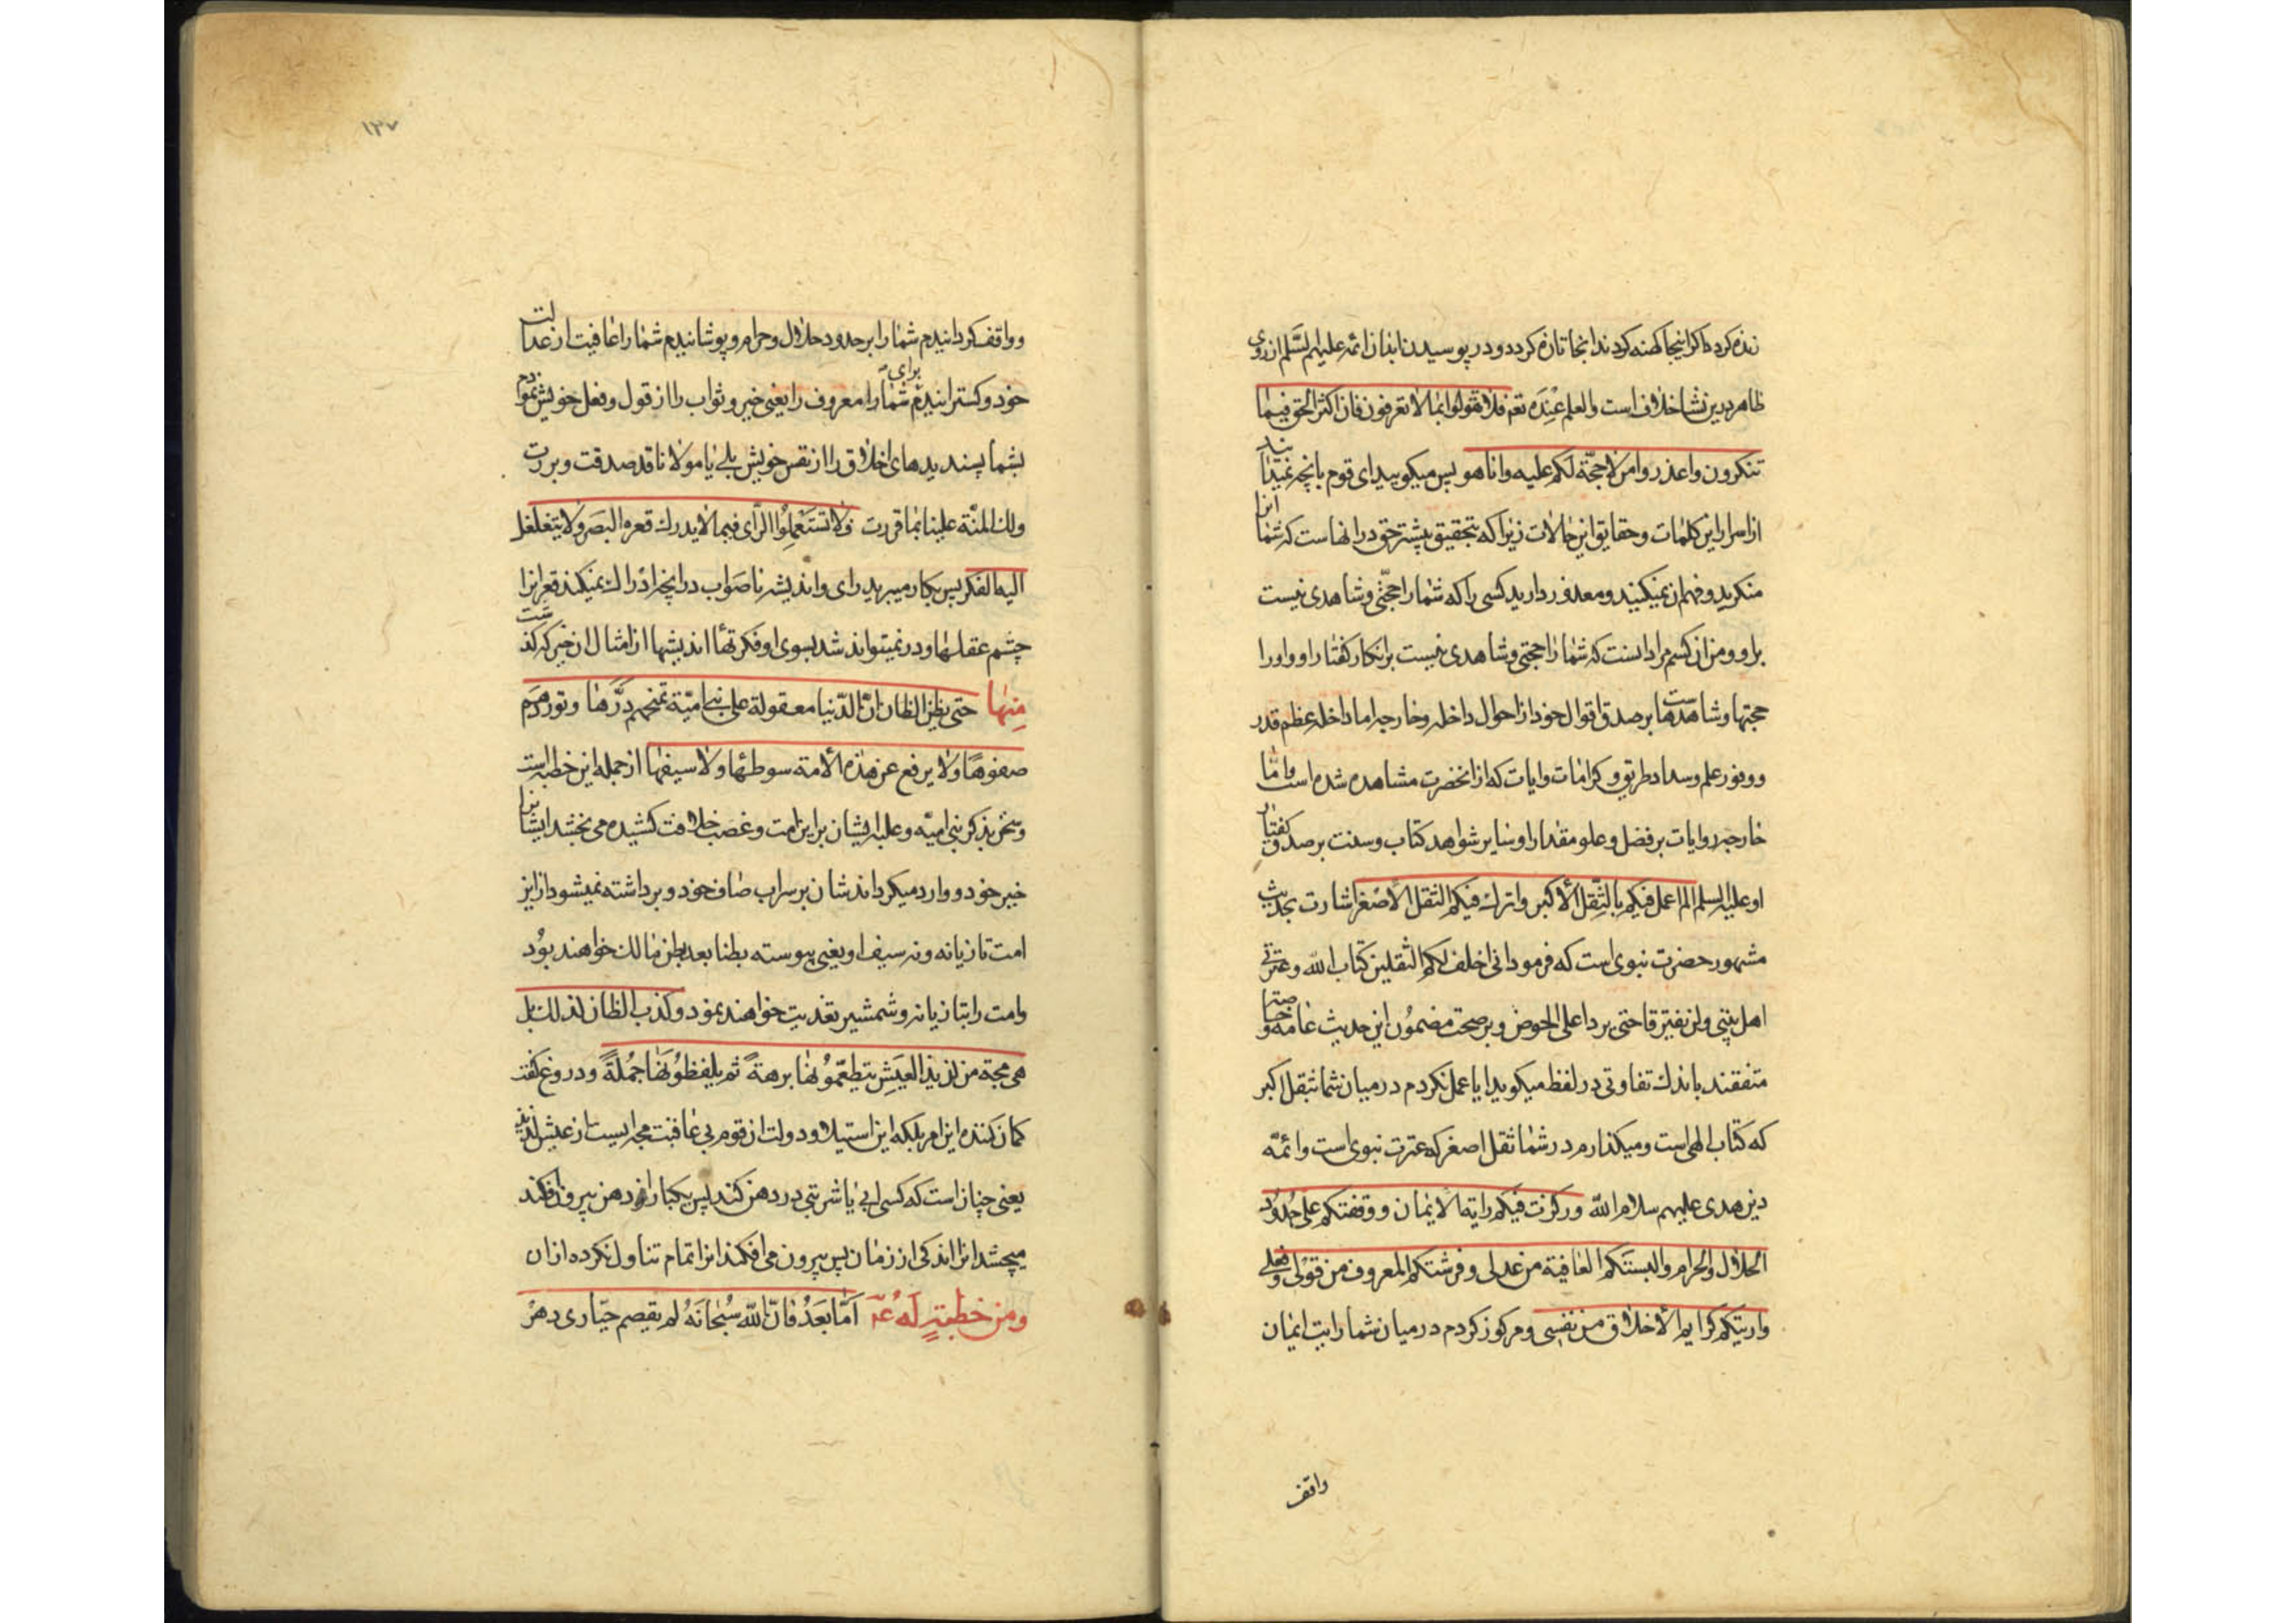 زنده کرد کاکر اینجا کهنه کردند انجا تازه کردد و در پوسیدن ابدان ائمه علیهم لسّلم از روی
ظاهر درین نشا خلاف است والعلم عِنْدَه تعم فلا تقولوا بما لا تعرفون فان اکثر الحق فیما
تنکرون واعذروا من لا حجّة لکم علیه وانا هو پس میکویید ای قوم بانچه نمیدانید
از اسرار این کلمات و حقایق این حالات زیرا که بتحقیق بیشتر حق در انهاست که شما انرا
منکرید و فهم ان نمیکنید و معذور دارید کسی را که شما را حجّتی و شاهدی نیست
براو و من ان کسم مراد انست که شما را حجتی و شاهدی نیست بر انکار کفتار او و اورا
حجتها و شاهدهاست بر صدق اقوال خود از احوال داخله و خارجه اما داخله عظم قدر
و وفور علم و سداد طریق و کرامات و ایات که از انحضرت مشاهده شده است و امّا
خارجه روایات بر فضل و علو مقدار او و سایر شواهد کتاب و سنت بر صدق کفتار
او علیه السلم الم اعمل فیکم بالثِّقل الأکبر واترک فیکم الثقل الأصْغر اشارت بحدیث
مشهور حضرت نبوی است که فرمود انی اخلف لکم الثقلین کتاب الله وعترتی
اهل بیتی ولن یفترقا حتی یردا علی الحوض و بر صحت مضمُون این حدیث عامه و خاصه
متفقند باندک تفاوتی در لفظ میکوید ایا عمل نکردم در میان شما بثقل اکبر
که کتاب الهی است و میکذارم در شما ثقل اصغر که عترت نبوی است و ائمّه
دین هدی علیهم سلام الله ورکزت فیکم رایة الایمان ووقفتکم علی حُدُود
الحلال والحرام والبستَکم العافیة من عدلی وفرشتکم المعروف من قولی وفعلی
واریتکم کرایم الأخلاق من نفسی و مرکوز کردم در میان شما رایت ایمان
واقف
١٣٧
و واقف کردانیدم شما را بر حدود حلال و حرام و پوشانیدم شما را عافیت از عدالت
خود و کسترانیدم برای شما را معروف را یعنی خیر و ثواب را از قول و فعل خویش نمودم
بشما پسندیدهای اخلاق را از نفس خویش بلی یا مولانا قد صدقت وبررت
ولک المنّة علینا بما قررت ولا تستَعْمِلُوا الرّأی فیما لا یدرک قعره البَصَر ولا یتغلغل
الیه الفکر پس بکار میبرید رای و اندیشه ناصَواب در انچه ادْراک نمیکند قعر انرا
چشم عقلها و در نمیتواند شد بسوی او فکرتها اندیشها از امثال ان خبر که کذشت
مِنهَا حتی یظن الظان انّ الدّنیا معقولة علی بنی امیّة تمنحهم دَرَّها وتوردهُم
صفوهَا ولا یرفع عن هذه الأمة سوطها ولا سیفها از جمله این خطبه است
و سخن بذکر بنی امیّه و غلبه ایشان بر این امت و غصب خلافت کشیده می بخشد ایشانرا
خیر خود و وارد میکرداند شان بر سراب صاف خود و برداشته نمیشود از این
امت تازیانه و نه سیف او یعنی پیوسته بطنا بعد بطن مالک خواهند بوُد
وامت را بتازیانه و شمشیر تعذیب خواهند نمود وکذب الظان لذلک بل
هی مجة من لذیذ العَیش یتطعّمُونها برهةً ثم یلفظُونهَا جُملةً و دروغ کفت
کمان کننده این امر بلکه این استیلا و دولت ان قوم بی عاقبت مجه ایست از عیش لذیذ
یعنی چنان است که کسی ابی یا شربتی در دهن کند پس یکبار از دهن بیرون افکند
میچشد انرا اندکی از زمان پس بیرون می افکند انرا تمام تناول نکرده از ان
ومن خطبةٍ لَهُ عَ اَمّا بَعَدُ فانّ اللّه سُبْحانَهُ لم یقصم جبّاری دهْر